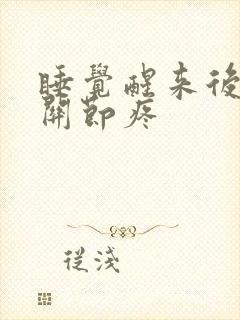 睡覺醒來後
關節疼
從淺